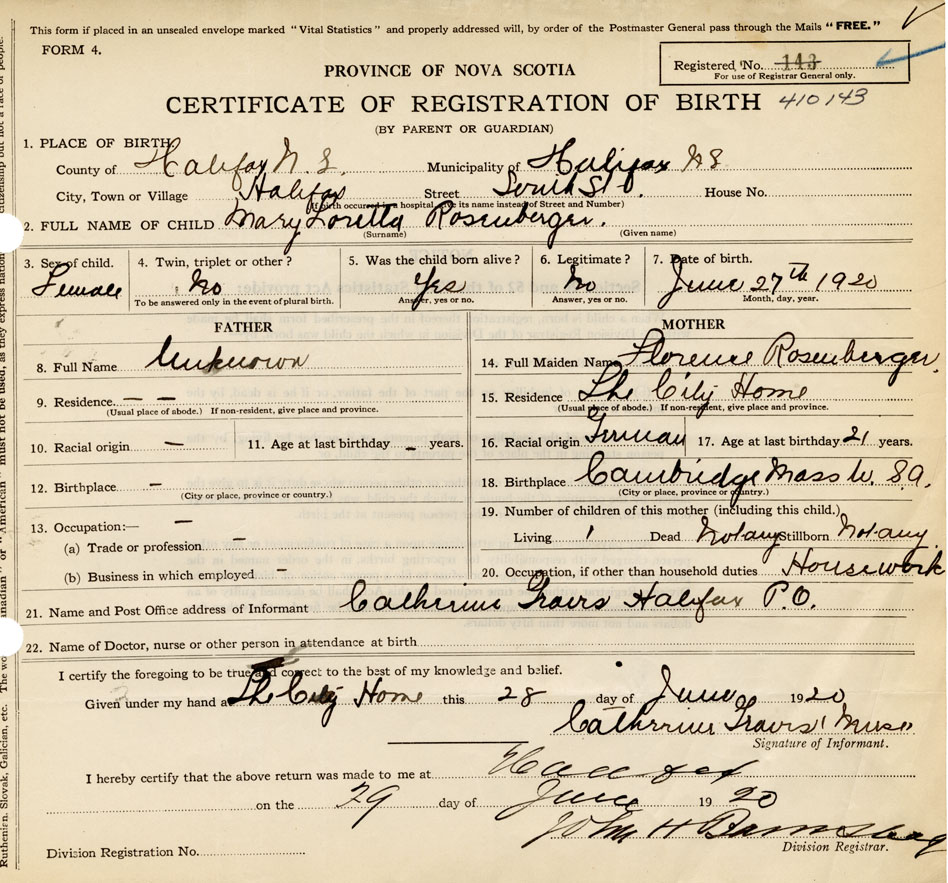 This form if placed in an unsealed envelope marked "Vital Statistics" and properly addressed will, by order of the Postmaster General pass through the Mails "FREE."
FORM 4.
Registered No. 143
For use of Registrar General only.
PROVINCE OF NOVA SCOTIA
CERTIFICATE OF REGISTRATION OF BIRTH 410143
(BY PARENT OR GUARDIAN)
1. PLACE OF BIRTH
County of Halifax N.S. Municipality of Halifax NS
City, Town or Village Halifax Street South St House No.
(If birth occurred in a hospital, give its name instead of Street and Number)
2. FULL NAME OF CHILD Mary Loretta Rosenberger.
(Surname) (Given name)
3. Sex of child. 4. Twin, triplet or other? 5. Was the child born alive? 6. Legitimate? 7. Date of birth.
Female No Yes No June 27th 1920
To be answered only in the event of plural birth. Answer, yes or no. Answer, yes or no. Month, day, year.
FATHER MOTHER
8. Full Name Unknown 14. Full Maiden Name Florence Rosenberger.
9. Residence — — 15. Residence The City Home
(Usual place of abode.) If non-resident, give place and province. (Usual place of abode.) If non-resident, give place and province.
10. Racial origin — 11. Age at last birthday — years. 16. Racial origin German 17. Age at last birthday 21 years.
12. Birthplace — 18. Birthplace Cambridge Mass U.S.A.
(City or place, province or country.) (City or place, province or country.)
13. Occupation:— — 19. Number of children of this mother (including this child.)
(a) Trade or profession — Living 1 Dead Not any Stillborn Not any
(b) Business in which employed — 20. Occupation, if other than household duties Housework
21. Name and Post Office address of Informant Catherine Travis Halifax P.O.
22. Name of Doctor, nurse or other person in attendance at birth
I certify the foregoing to be true and correct to the best of my knowledge and belief.
Given under my hand at The City Home this 28 day of June 1920
Catherine Travis
Signature of Informant.
I hereby certify that the above return was made to me at Halifax
on the 29 day of June 1920
John H
Division Registrar.
Division Registration No.